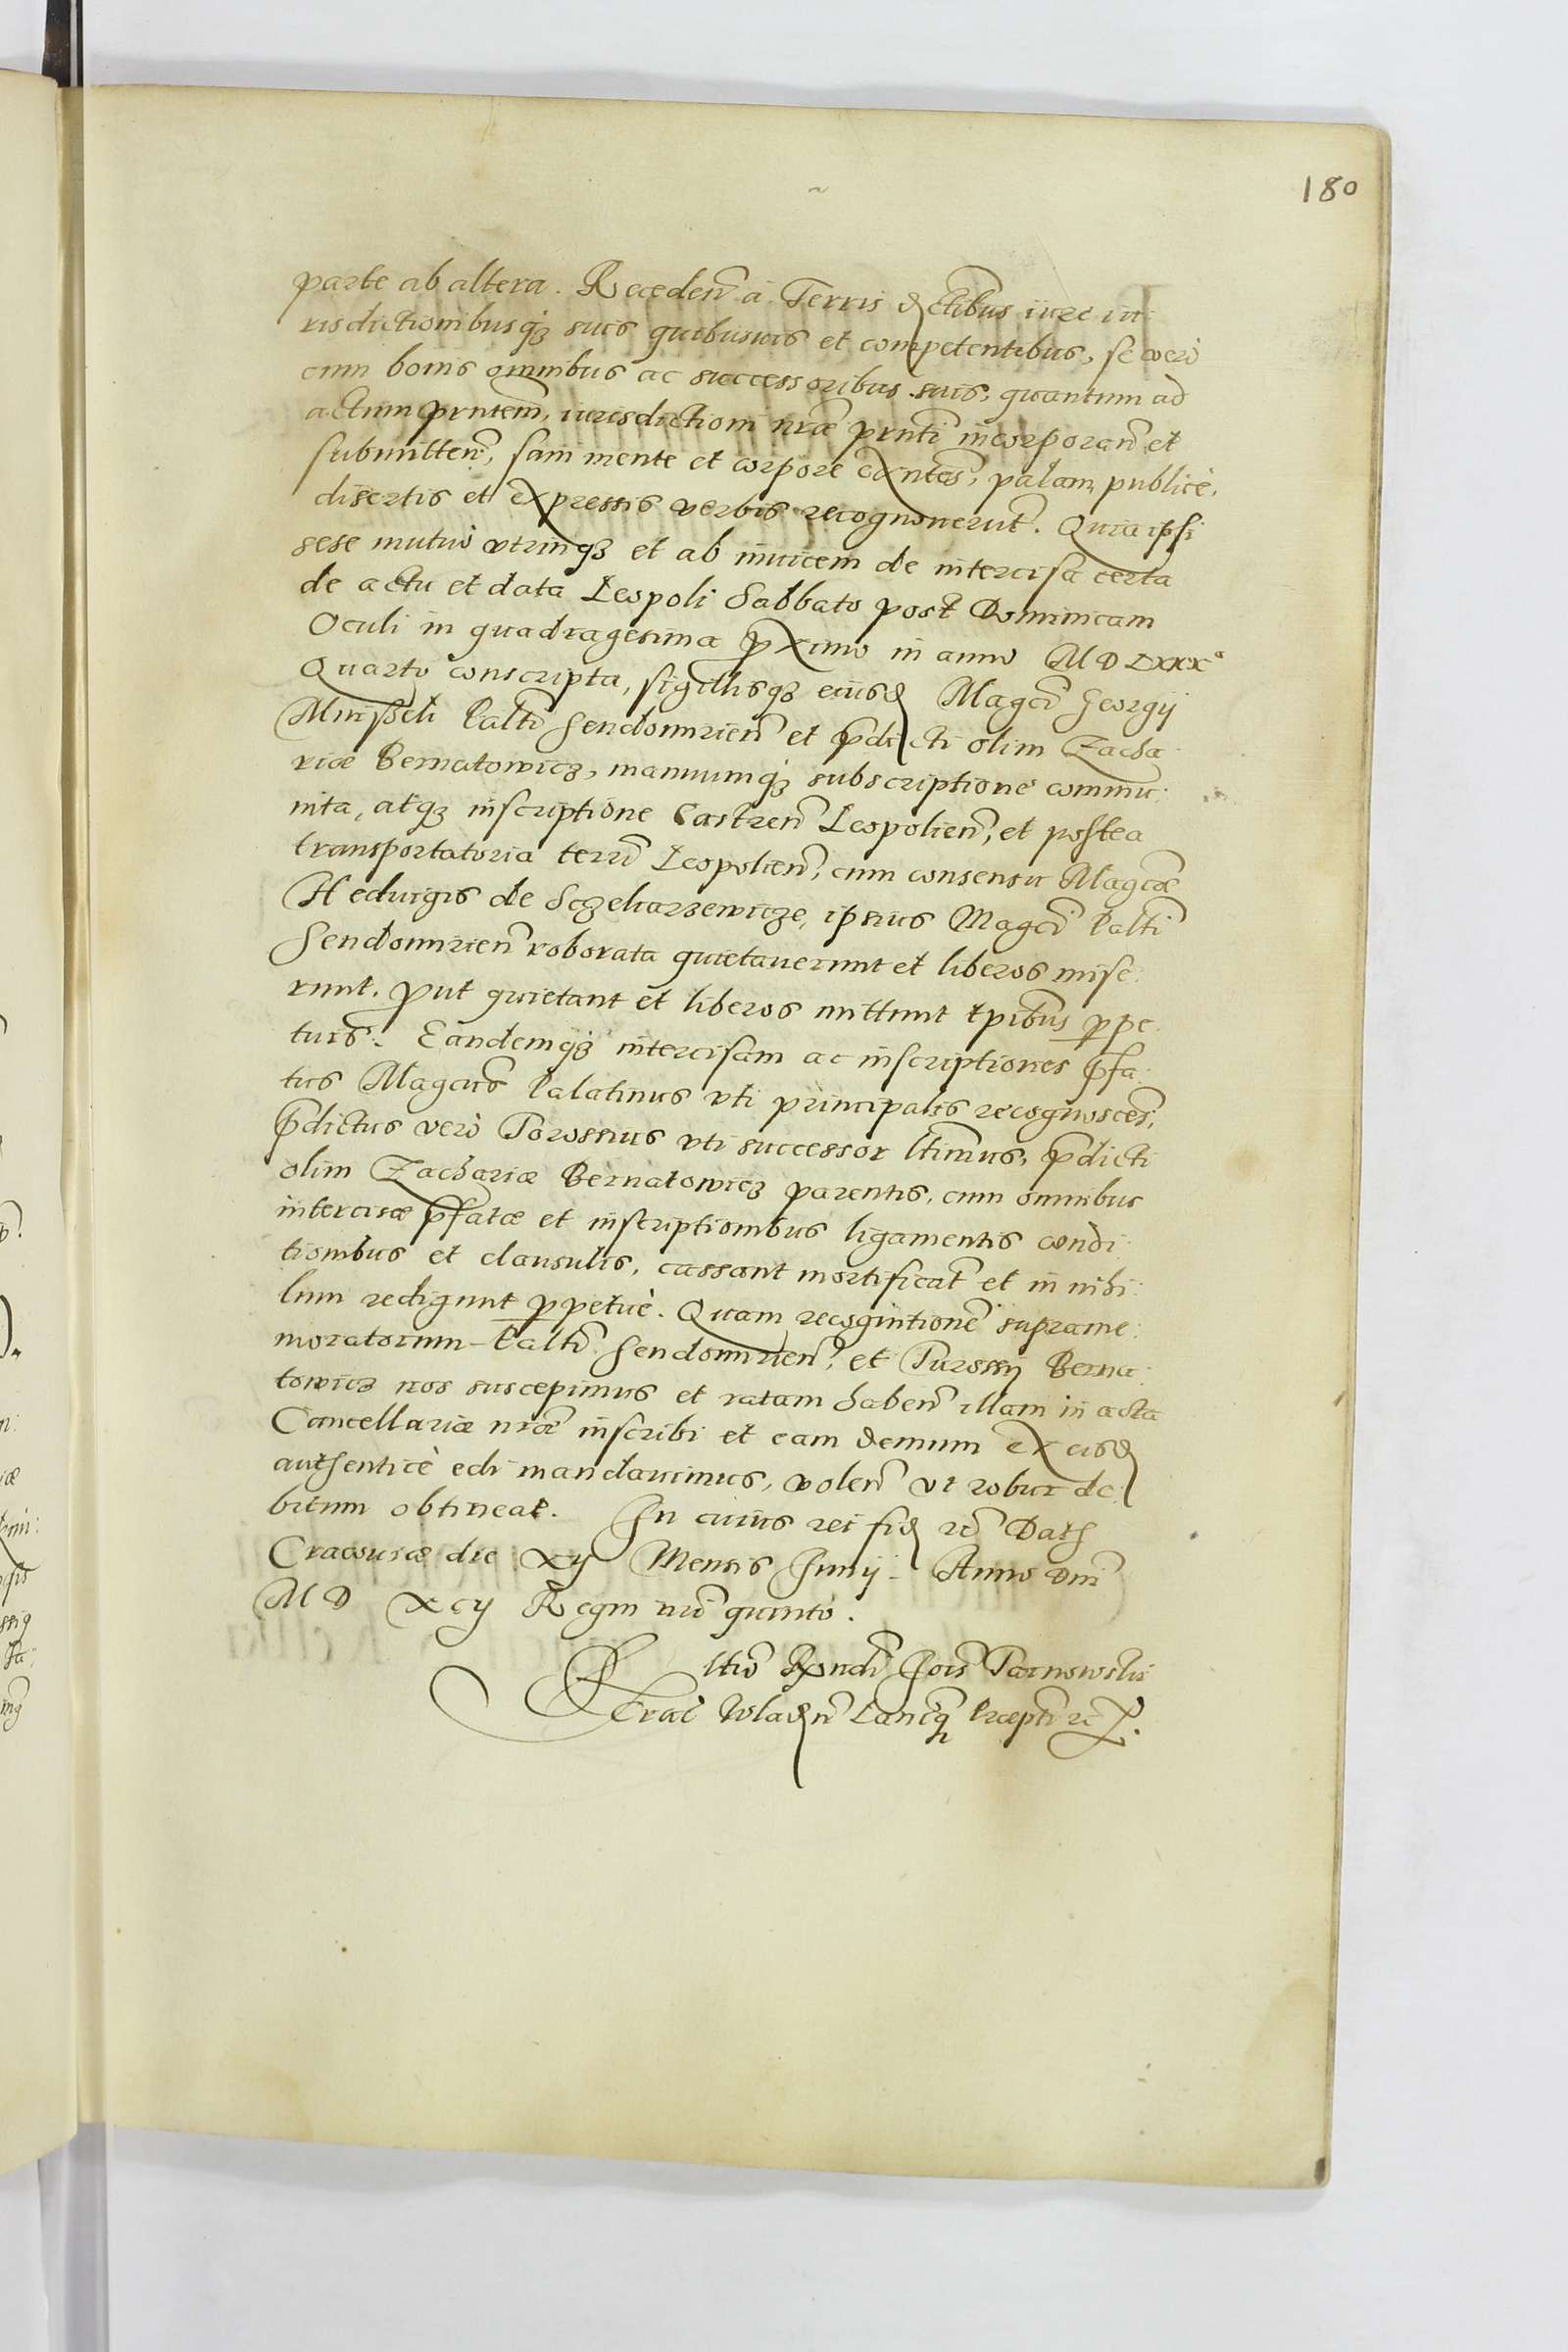 180
parte ab altera. Receden̄ a Terris d[istri]ctibus iure iu:
risdictionibusq́ꝫ suis quibusuis et competentibus, se verò
cum bonis omnibus ac successoribus suis, quantum ad
actum prntem̄, iurisdictioni nrǣ prnti incorporan̄ et
submitten̄, sani mente et corpore exn̄tes, palam publicè,
disertis et expressis verbis recognouerūt. Quia ipsi
sese mutuò vtrinqꝫ et ab inuicem de intercisa certa
de actu et data Leopoli Sabbato post Dominicam
Oculi in quadragesima ꝓximo in anno MDLXXXº
Quarto conscripta, sigillisqꝫ eiusd Magc̄i Georgij
Mnisseli Paltī Sendomirien̄ et p̄dicti olim Zacha
riæ Bernatowicz, manuumq́ꝫ subscriptione commu:
nita, atqꝫ inscriptione Castren̄ Leopolien̄, et postea
transportatoria terrī Leopolien̄, cum consensu Magcǣ
Heduigis de Sczekarzewicze, ipsius Magc̄i Paltī
Sendomirien̄ roborata quietauerunt et liberos mise:
runt. Put quietant et liberos mittunt tp̄ibus ꝑpe
tuis. Eandemq́ꝫ intercisam ac inscriptiones p̄fa:
tus Magcūs Palatinus vti principalis recognoscēs,
p̄dictus verò Torossius vti successor ltīmus, p̄dicti
olim Zachariæ Bernatowicz parentis, cum omnibus
intercisæ p̄fatæ et inscriptionibus ligamentis condi:
tionibus et clausulis, cassant mortificāt et in nihi:
lum redigunt ꝑpetuè. Quam recognitionē suprame:
moratorum Paltī Sendomirien̄, et Turossij Berna:
towicz nos suscepimus et ratam haben̄ illam in acta
Cancellariæ nrǣ inscribi et eam demum ex eisd
authenticè edi mandauimus, volen̄ vt robur de:
bitum obtineat. In cuius rei fid rc̄ Dat
Cracouiæ die xij Mensis Junij. Anno Dnī
MD xcij Regni nrī quinto.
R[e]ltiō Rn̄di Jois Tarnowski
Crac̄ Wladn̄ Lancq̄ Præpti rc̄